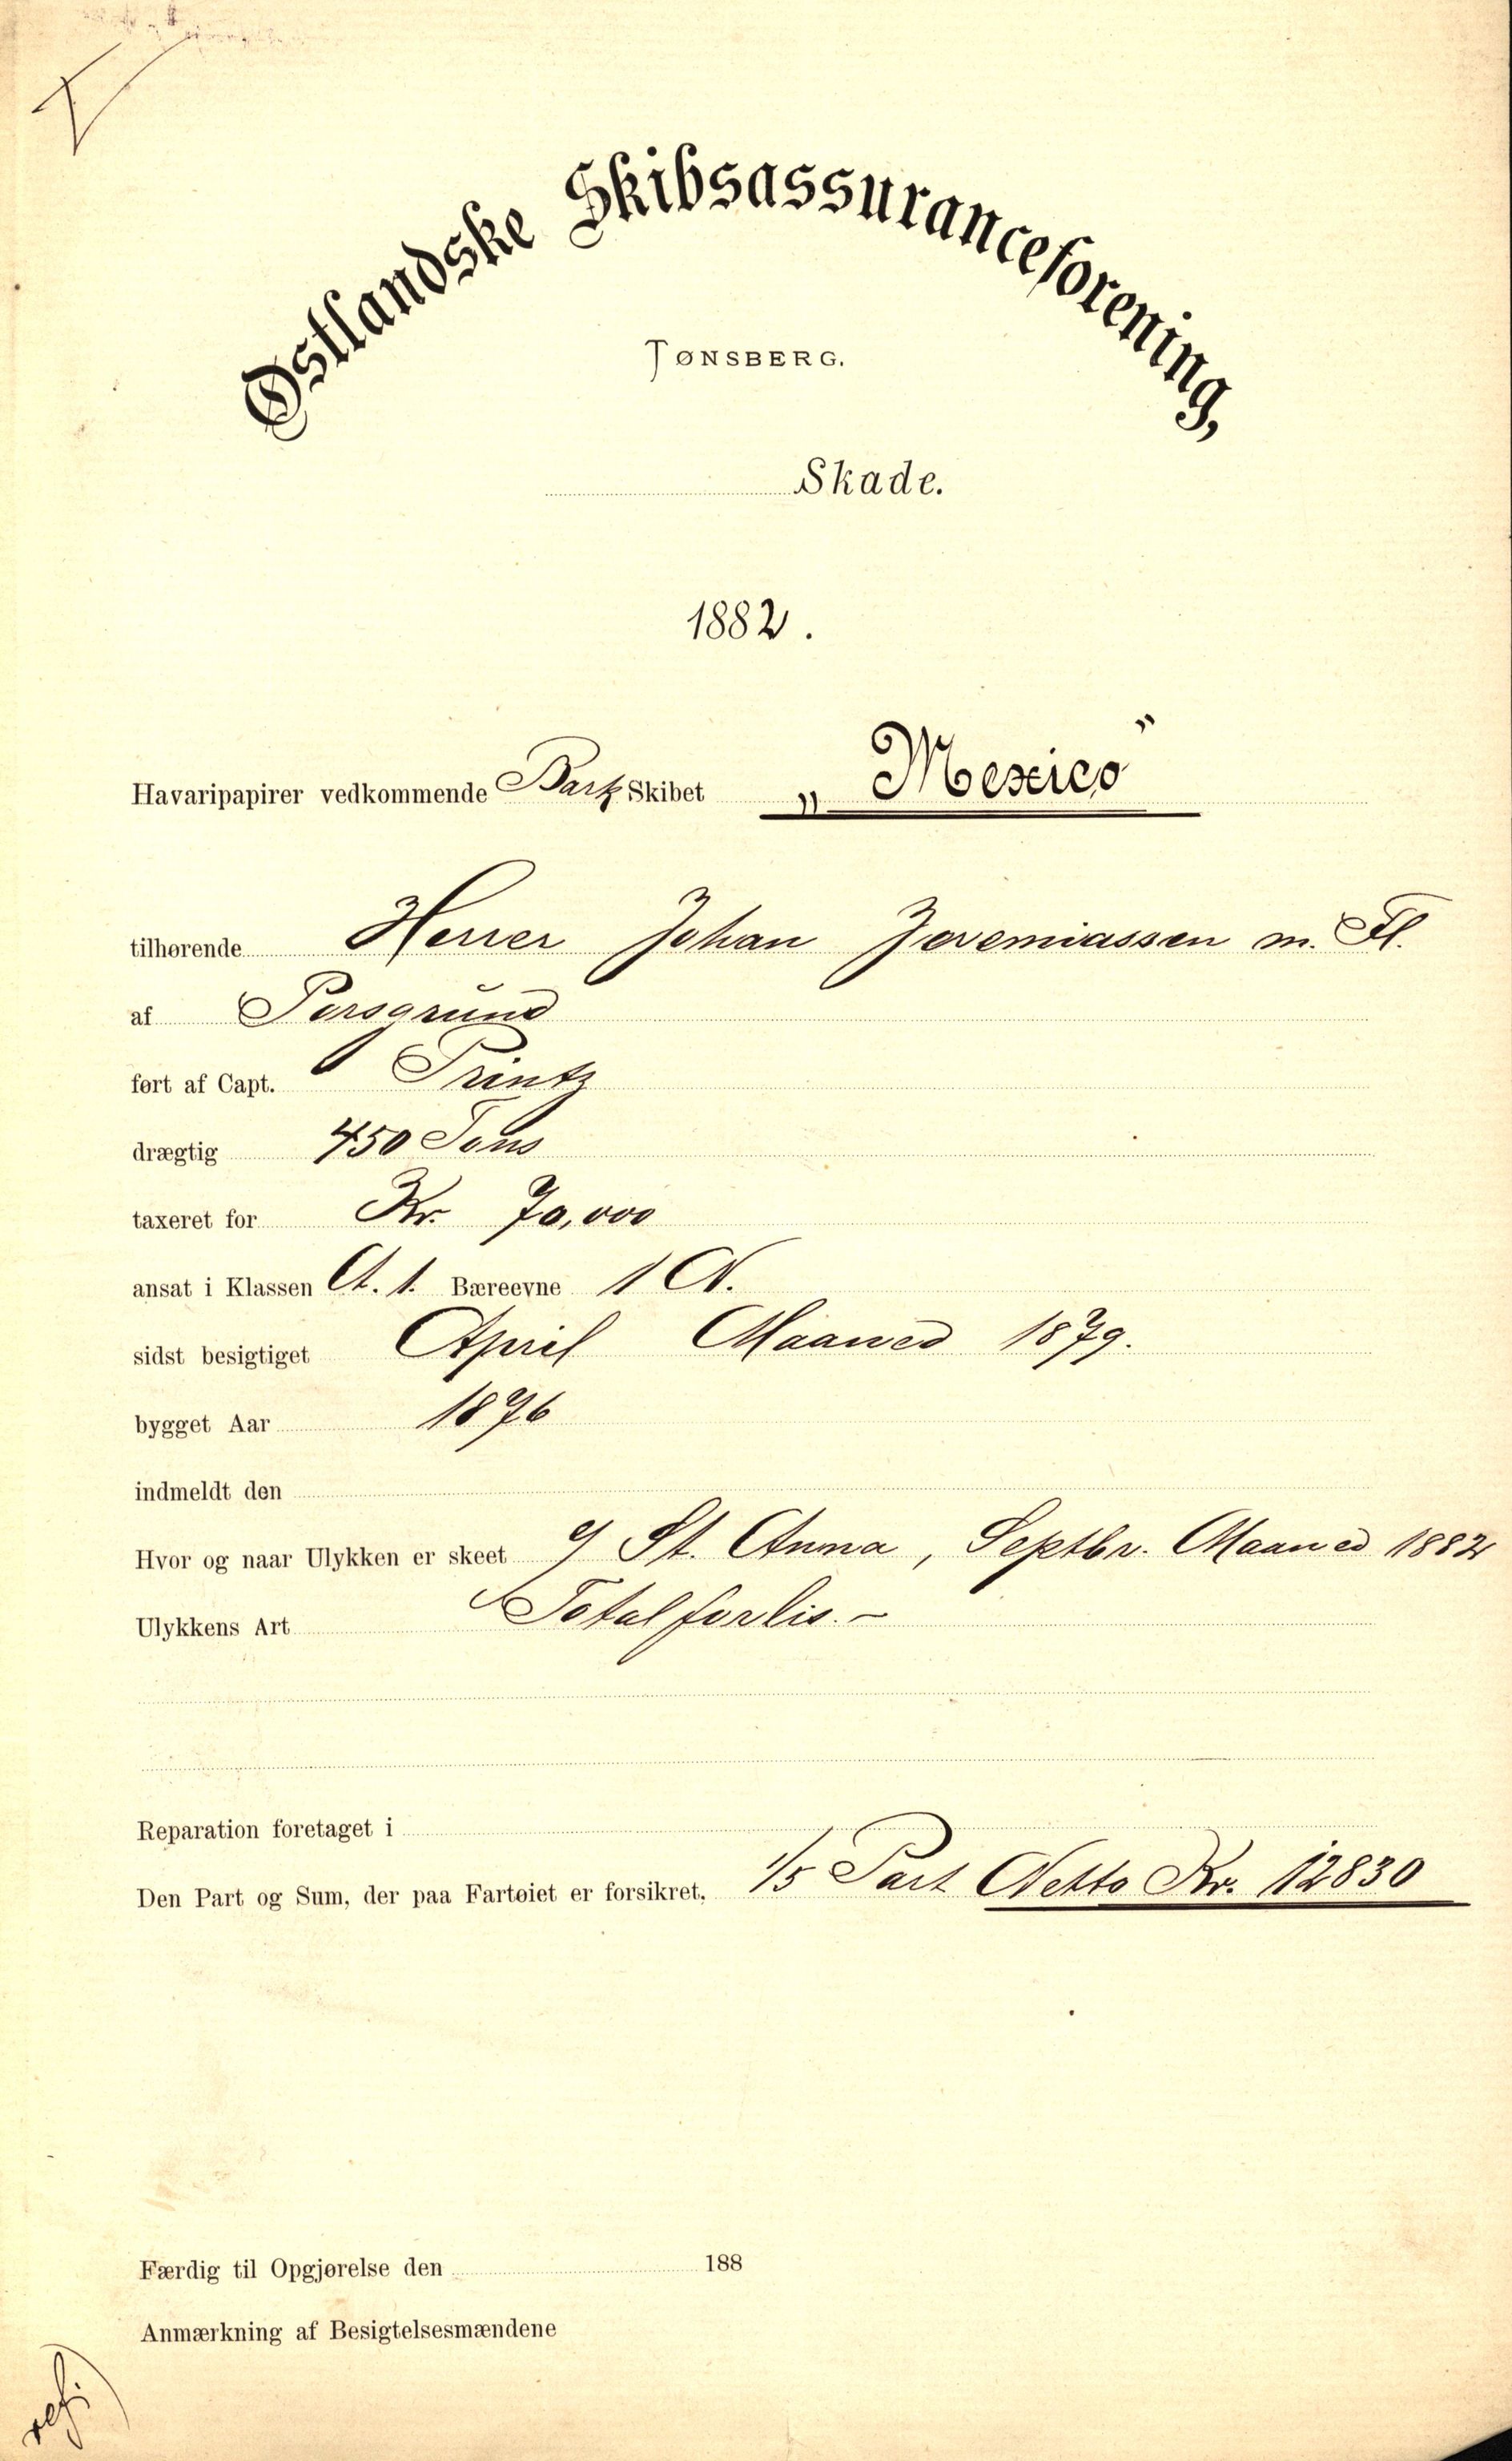 Østlandske Skibsassuranceforening,
TØNSBERG.
Skade.
1882.
Havaripapirer vedkommende Bark Skibet „Mexico”
tilhørende Herrer Johan Jeremiassen m. Fl.
af Porsgrund
ført af Capt. Printz
drægtig 450 Tons
taxeret for Kr. 70,000
ansat i Klassen A. 1. Bæreevne 1 N.
sidst besigtiget April Maaned 1879.
bygget Aar 1876
indmeldt den
Hvor og naar Ulykken er skeet St. Anna, Septbr. Maaned 1882
Ulykkens Art Totalforlis. -
Reparation foretaget i
Den Part og Sum, der paa Fartøiet er forsikret, 1/5 Part Netto Kr. 12830
Færdig til Opgjørelse den 188
Anmærkning af Besigtelsesmændene